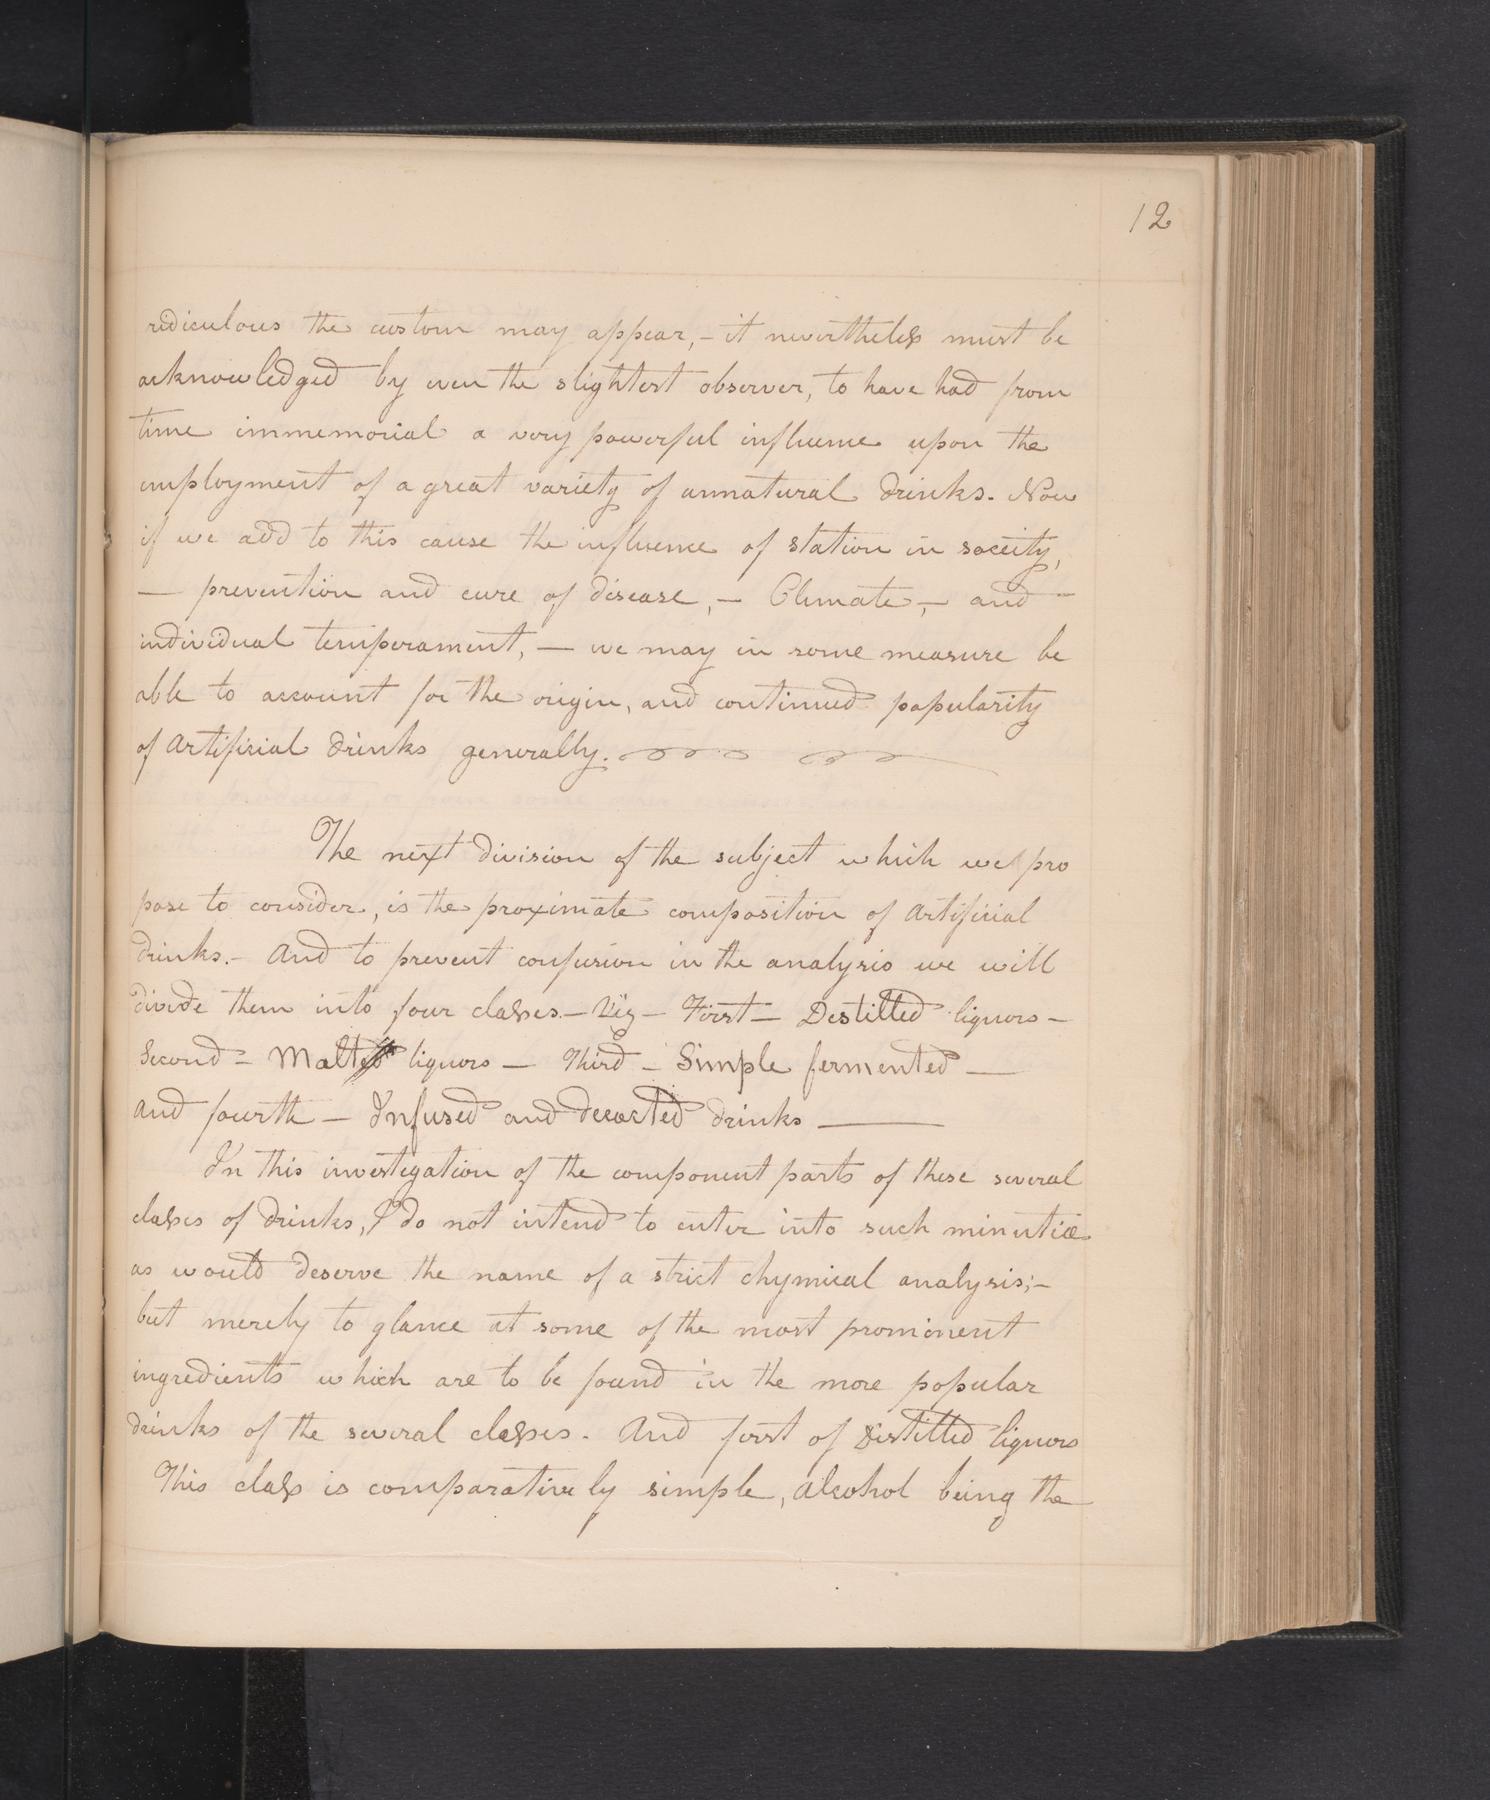 12
ridiculous the custom may appear,- it nevertheless must be
acknowledged by even the slightest observer, to have had from
time immemorial a very powerful influence upon the
employment of a great variety of unnatural drinks. Now
if we add to this cause the influence of station in soceity,
— prevention and cure of disease, — Climate, — and —
individual temperament, — we may in some measure be
able to account for the origin, and continued popularity
of artificial drinks generally.
The next division of the subject which we pro
pose to consider, is the proximate composition of artificial
drinks.- And to prevent confusion in the analysis we will
divide them into four classes.- Viz - First - Destilled liquors -
Second - Malted liquors - Third - Simple fermented —
and fourth - Infused and decocted drinks —
In this investigation of the component parts of these several
classes of drinks, I do not intend to enter into such minutiæ
as would deserve the name of a strict chymical analysis;-
but merely to glance at some of the most prominent
ingredients which are to be found in the more popular
drinks of the several classes. And first of Distilled liquors
This class is comparatively simple, alcohol being the